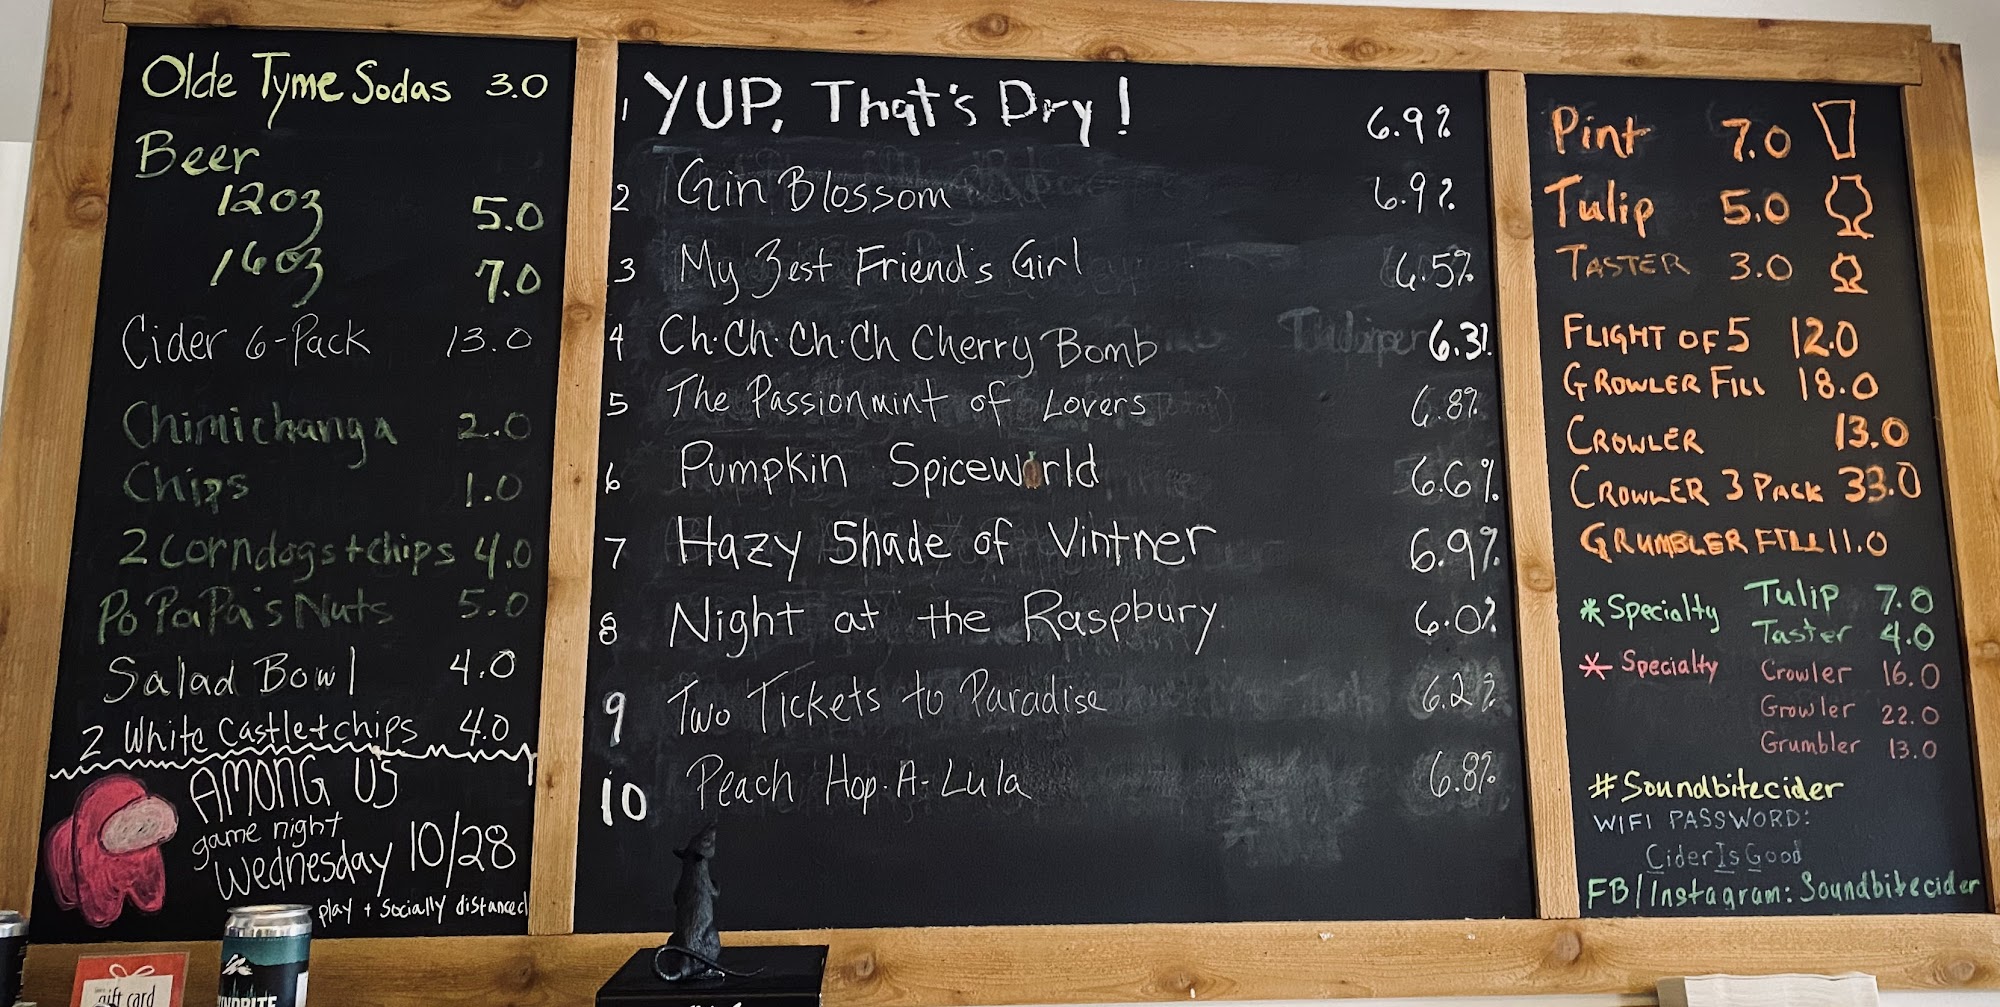 Olde Tyme Sodas 3.0
Beer
12oz 5.0
16oz 7.0
Cider 6-Pack 13.0
Chimichanga 2.0
Chips 1.0
2 Corndogs + chips 4.0
Po PaPa's Nuts 5.0
Salad Bowl 4.0
2 White Castle + chips 4.0
AMONG US
game night
Wednesday 10/28
play + socially distanced
1 YUP, That's Dry! 6.9%
2 Gin Blossom 6.9%
3 My Zest Friend's Girl 6.5%
4 Ch·Ch·Ch·Ch Cherry Bomb 6.3%
5 The Passionmint of Lovers 6.8%
6 Pumpkin Spiceworld 6.6%
7 Hazy Shade of Vintner 6.9%
8 Night at the Raspbury 6.0%
9 Two Tickets to Paradise 6.2%
10 Peach Hop-A-Lula 6.8%
Pint 7.0
Tulip 5.0
TASTER 3.0
FLIGHT OF 5 12.0
GROWLER FILL 18.0
CROWLER 13.0
CROWLER 3 PACK 33.0
GRUMBLER FILL 11.0
* Specialty Tulip 7.0
Taster 4.0
* Specialty Crowler 16.0
Growler 22.0
Grumbler 13.0
#Soundbitecider
WIFI PASSWORD:
CiderIsGood
FB/Instagram: Soundbitecider
gift card